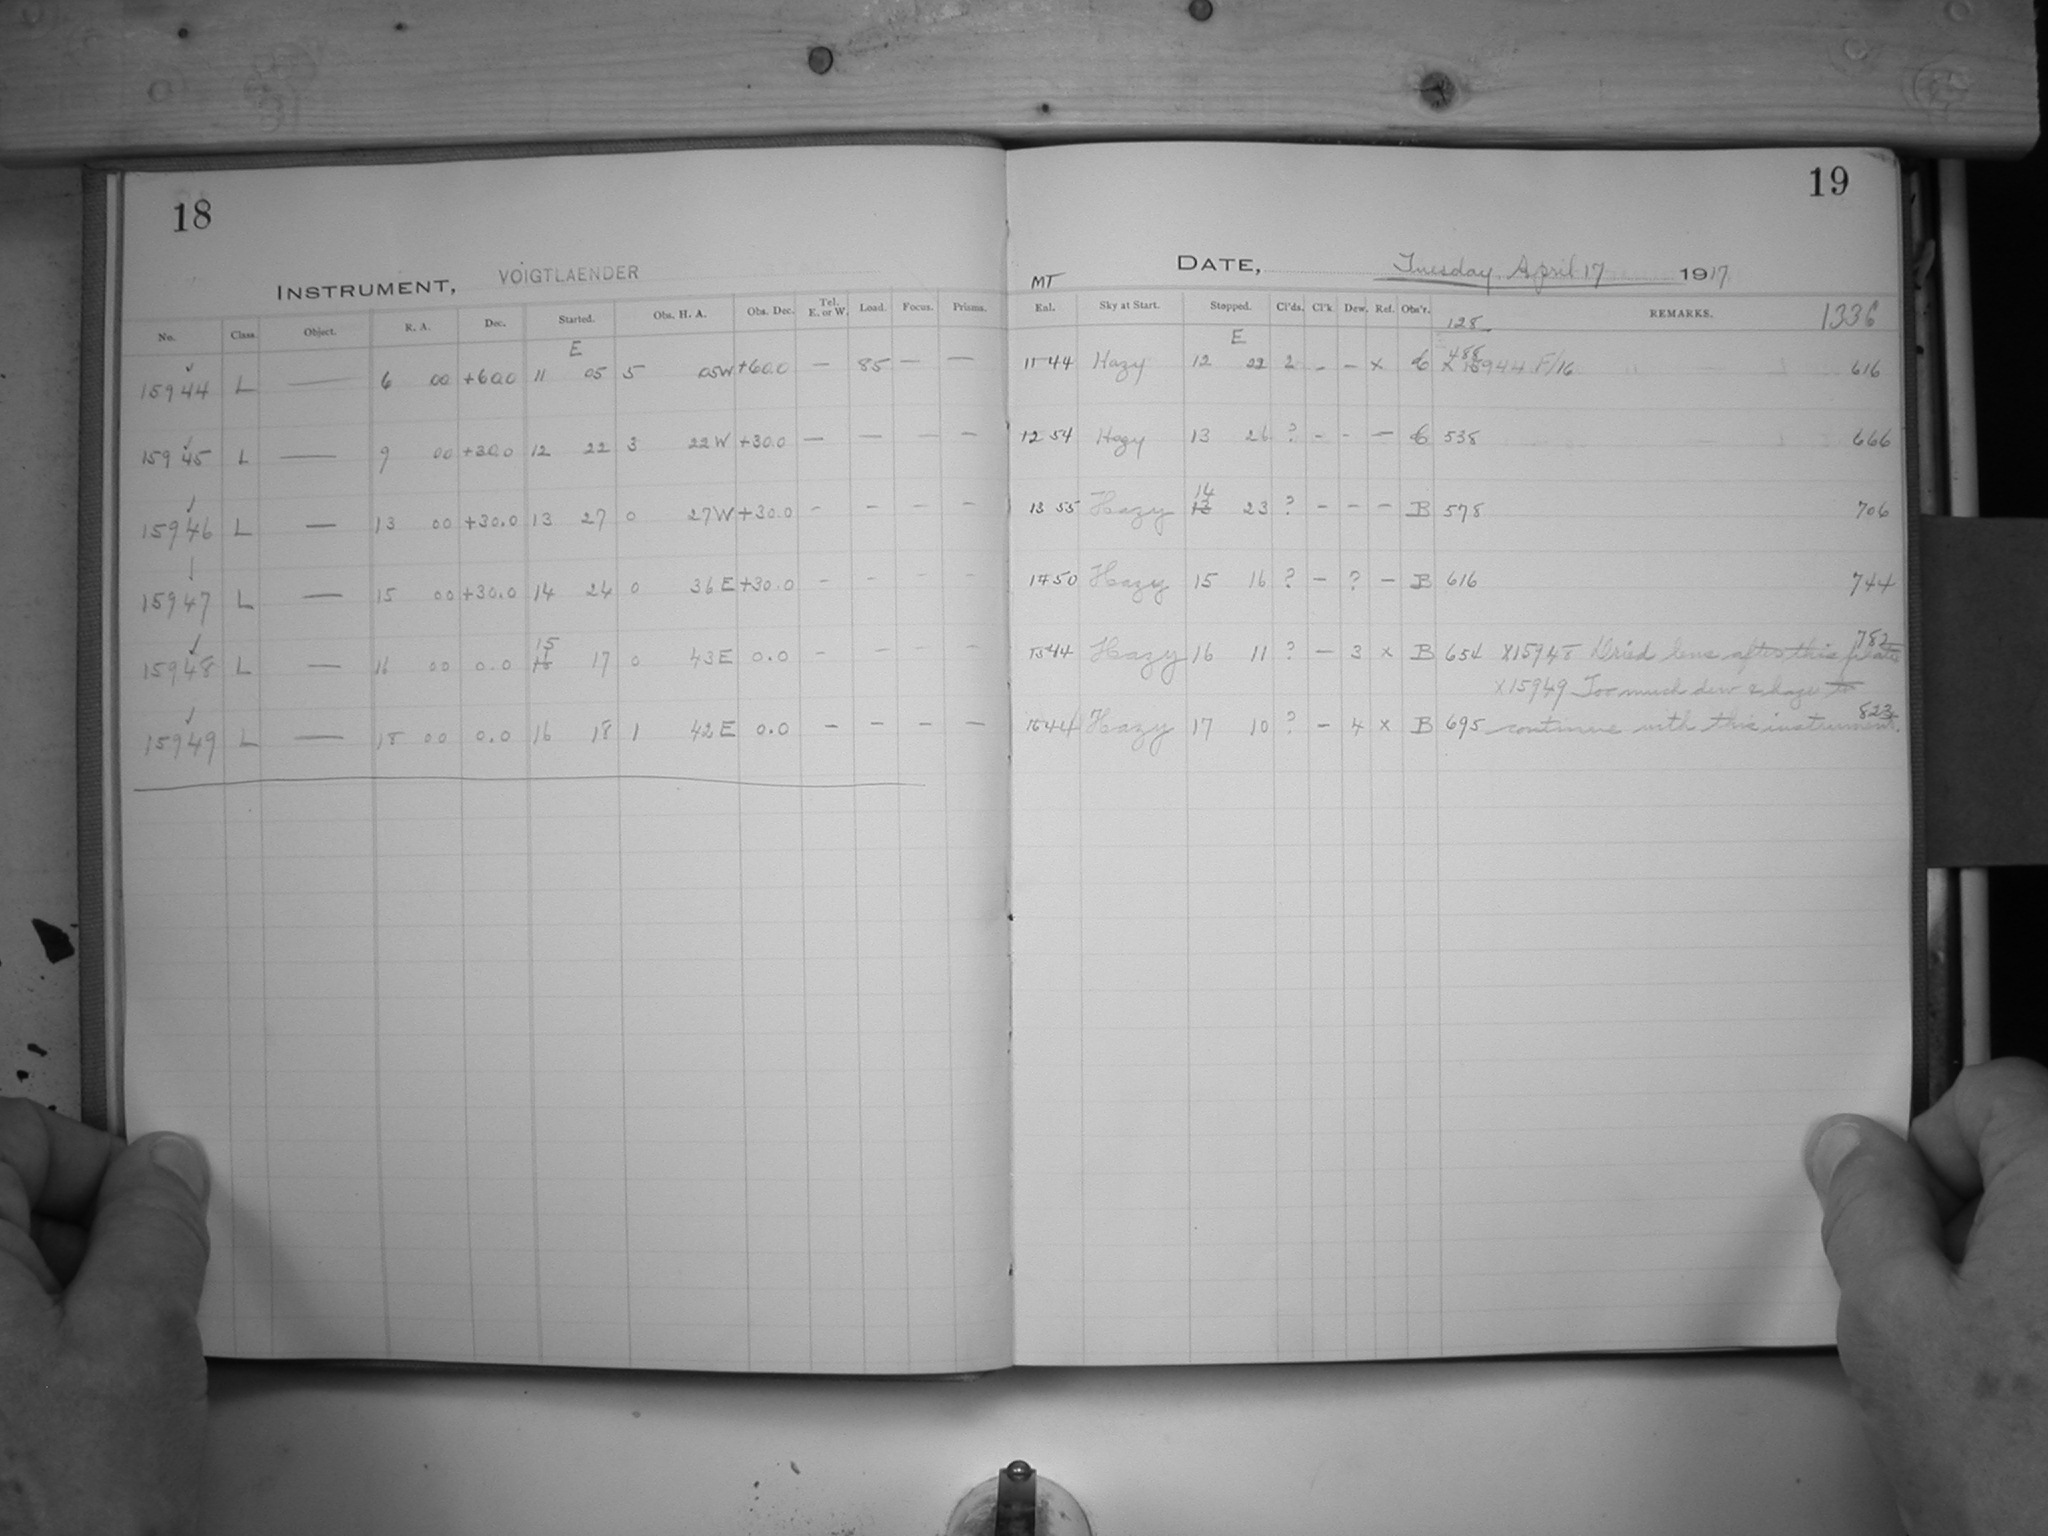 18
INSTRUMENT, VOIGTLAENDER
No. Class Object. R. A. Dec. Started. Obs. H. A. Obs. Dec. Tel. E. or W. Load. Focus. Prisms.
E
15944 L — 6 00 +60.0 11 05 5 05W +60.0 — 85 — —
15945 L — 9 00 +30.0 12 22 3 22W +30.0 — — — —
15946 L — 13 00 +30.0 13 27 0 27W +30.0 - - - -
15947 L — 15 00 +30.0 14 24 0 36E +30.0 - - - -
15
15948 L — 16 00 0.0 17 0 43E 0.0 - - - -
15949 L — 18 00 0.0 16 18 1 42E 0.0 - - - -
19
DATE, Tuesday April 17 1917
MT
Eal. Sky at Start. Stopped. Cl'ds. Cl'k Dew. Ref. Obs'r. REMARKS. 1336
E 128
11 44 Hazy 12 22 2 - - x C 488 x 15944 F/16 616
12 54 Hazy 13 26 ? - - — C 538 666
14
13 55 Hazy 13 23 ? - - - B 578 706
14 50 Hazy 15 16 ? - ? - B 616 744
15 44 Hazy 16 11 ? - 3 x B 654 X15948 Dried lens after this plate 782
X15949 Too much dew & haze to
16 44 Hazy 17 10 ? - 4 x B 695 continue with this instrument. 823